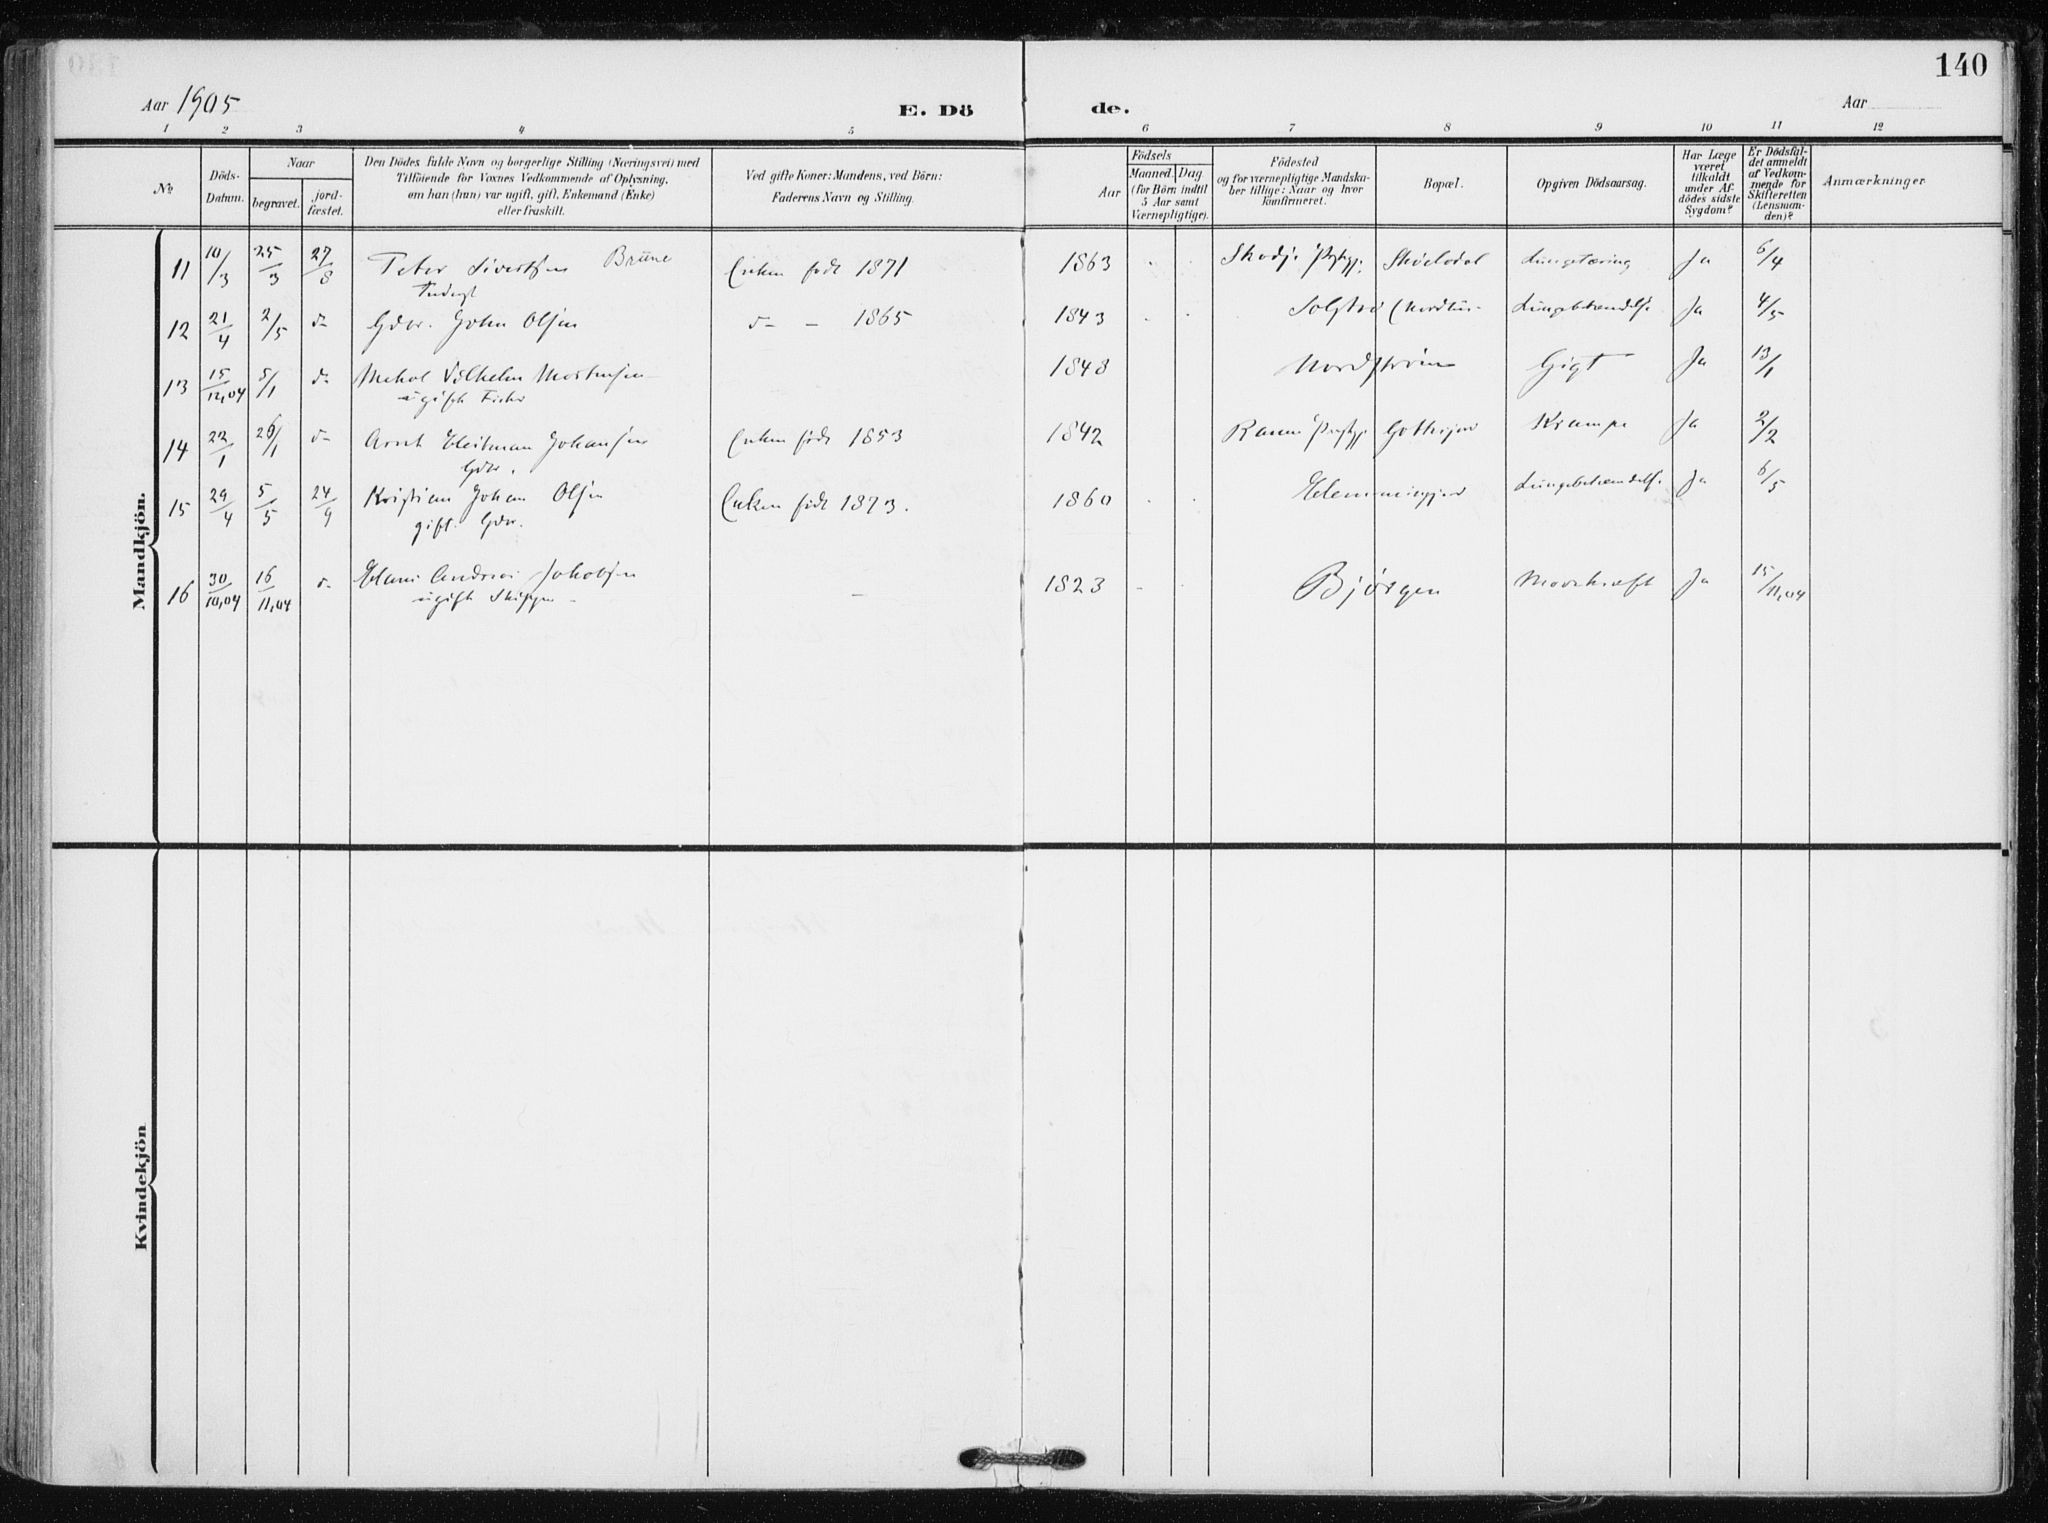 140
Aar 1905
E. Dö de.
Aar
1 2 3 4 5 6 7 8 9 10 11 12
№
Döds-
Datum.
Naar
begravet.
jord-
fæstet.
Den Dödes fulde Navn og borgerlige Stilling (Næringsvei) med
Tilföiende for Voxnes Vedkommende af Oplysning,
om han (hun) var ugift, gift, Enkemand (Enke)
eller fraskilt.
Ved gifte Koner: Mandens, ved Börn:
Faderens Navn og Stilling.
Födsels
Aar
Maaned. Dag
(for Börn indtil
5 Aar samt
Værnepligtige).
Födested
og for værnepligtige Mandska-
ber tillige: Naar og hvor
konfirmeret.
Bopæl.
Opgiven Dödsaarsag.
Har Læge
været
tilkaldt
under Af-
dödes sidste
Sygdom?
Er Dödsfal-
det anmeldt
af Vedkom-
mende for
Skifteretten
(Lensman-
den)?
Anmærkninger
Mandkjön.
11 10/3 25/3 27/8 Peter Sivertsen Brune Enken født 1871 1863 Lungetæring Ja 6/4
12 21/4 2/5 d- Gdbr. John Olsen d- - 1865 1843 Lungebetændelse Ja 4/5
13 15/12,04 5/1 d- Vilhelm Mortensen 1848 Nordstrøm Gigt Ja 13/1
ugift Fisker
14 22/1 26/1 d- Arnt Johansen Enken født 1853 1842 Krampe Ja 2/2
Gdbr.
15 29/4 5/5 24/9 Kristian Johan Olsen Enken født 1873. 1860 Lungebetændelse Ja 6/5
gift. Gdbr.
16 30/10,04 16/11,04 d- Hans Andreas Jakobsen - 1823 Bjørgen Ja 15/11,04
ugift
Kvindekjön